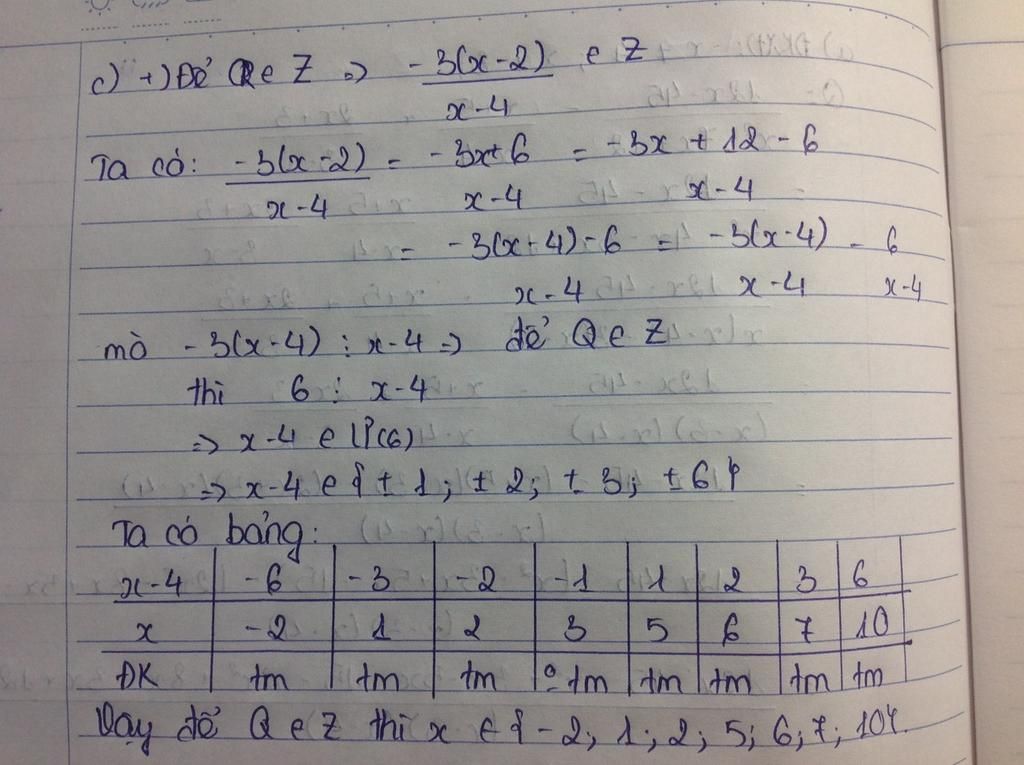 c) +) Để Q ∈ Z => -3(x-2) / x-4 ∈ Z
Ta có: -3(x-2) / x-4 = -3x+6 / x-4 = -3x + 12 - 6 / x-4
= -3(x+4)-6 / x-4 = -3(x-4) / x-4 - 6 / x-4
mà -3(x-4) ⋮ x-4 => để Q ∈ Z
thì 6 ⋮ x-4
=> x-4 ∈ Ư(6)
=> x-4 ∈ { ± 1; ± 2; ± 3; ± 6 }
Ta có bảng:
x-4 | -6 | -3 | -2 | -1 | 1 | 2 | 3 | 6
x | -2 | 1 | 2 | 3 | 5 | 6 | 7 | 10
ĐK | tm | tm | tm | o tm | tm | tm | tm | tm
Vậy để Q ∈ Z thì x ∈ { -2; 1; 2; 5; 6; 7; 10 }.